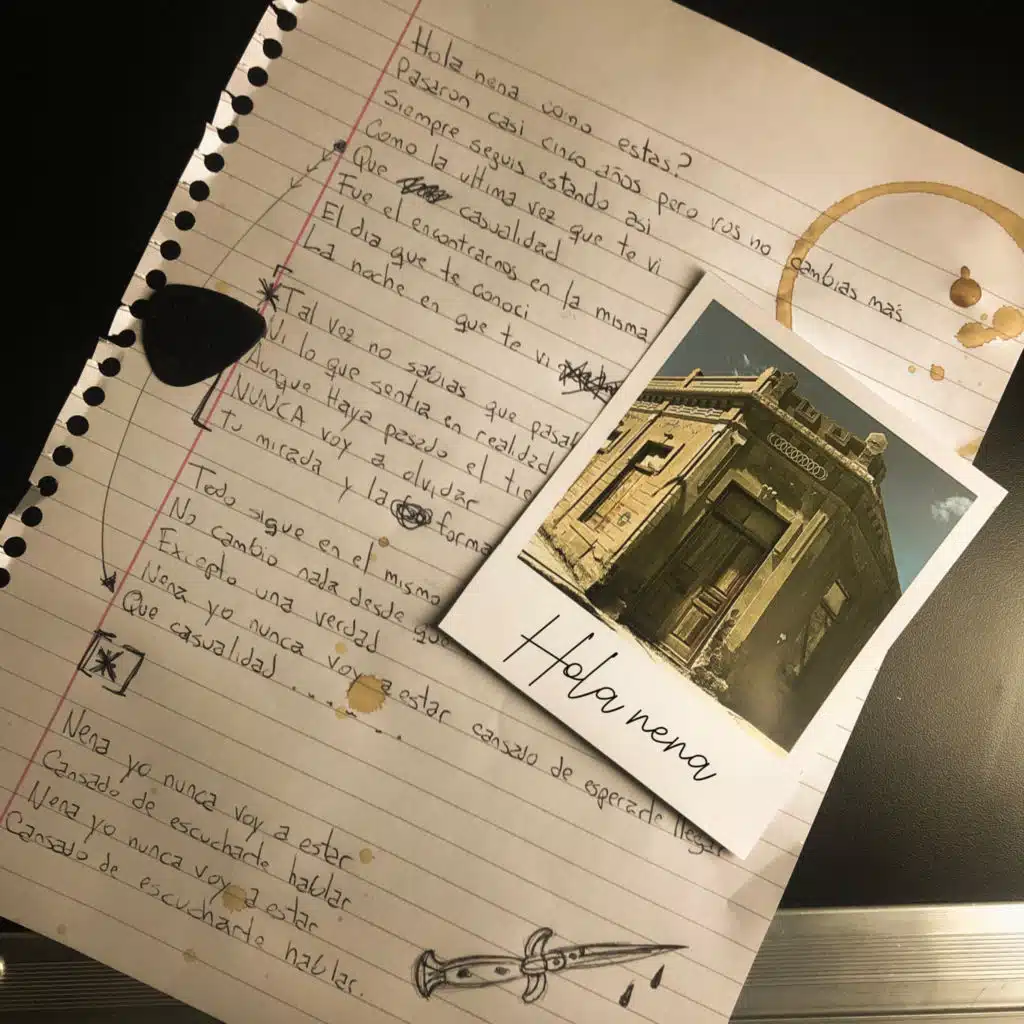 Hola nena como estas?
Pasaron casi cinco años pero vos no cambias mas
Siempre seguis estando asi
Como la ultima vez que te vi
Que casualidad
Fue el encontrarnos en la misma
El dia que te conoci
La noche en que te vi
*Tal vez no sabias que pasa
Ni lo que sentia en realidad
Aunque Haya pasado el tie
NUNCA voy a olvidar
Tu mirada y la forma
Todo sigue en el mismo
No cambio nada desde que
Excepto una verdad
Nena yo nunca voy a estar cansado de esperarte llegar
Que casualidad........
[*]
Nena yo nunca voy a estar
Cansado de escucharte hablar
Nena yo nunca voy a estar
Cansado de escucharte hablar.
Hola nena